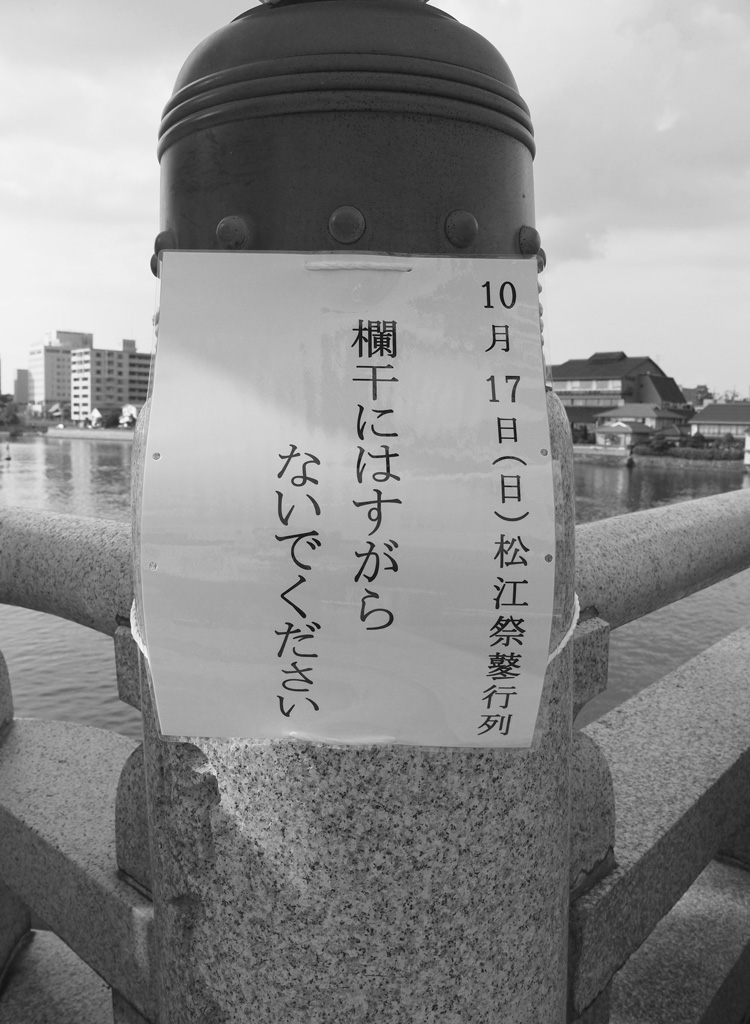 10月17日(日)松江祭鼕行列
欄干にはすがら
ないでください